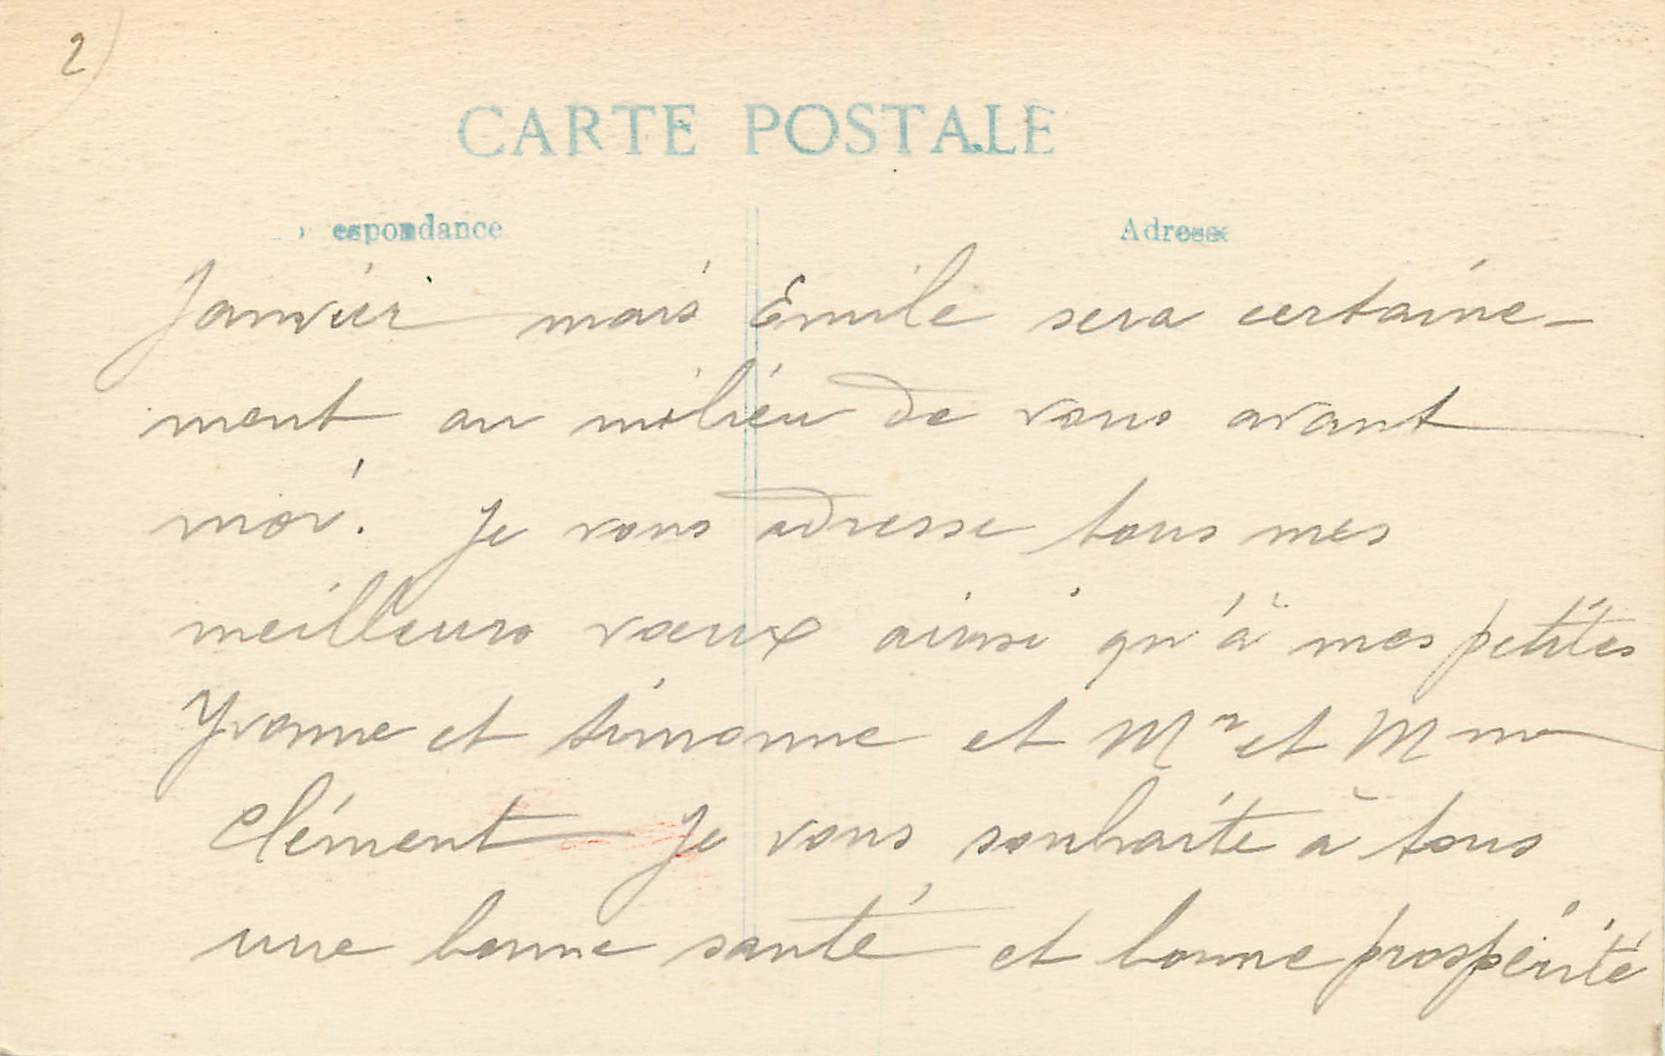 2)
CARTE POSTALE
espondance Adresse
Janvier mais Emile sera certaine-
ment au milieu de vous avant
moi. Je vous adresse tous mes
meilleurs vœux ainsi qu'à mes petites
Yvonne et Simonne et Mr et Mme
Clément Je vous souhaite à tous
une bonne santé et bonne prospérité